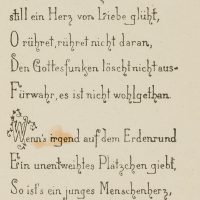 still ein Herz von Liebe glüht,
O rühret, rühret nicht daran,
Den Gottesfunken löscht nicht aus-
Fürwahr, es ist nicht wohlgethan.
Wenn's irgend auf dem Erdenrund
Ein unentweihtes Plätzchen giebt,
So ist's ein junges Menschenherz,